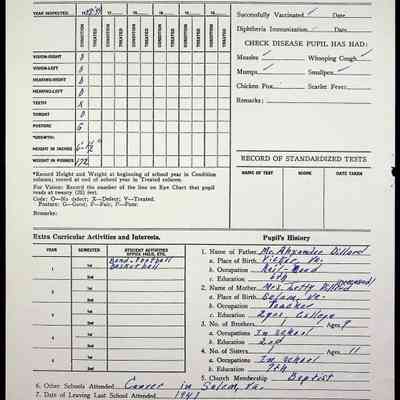 YEAR INSPECTED 19 19 19 19 19 19
CONDITION TREATED CONDITION TREATED CONDITION TREATED CONDITION TREATED CONDITION TREATED CONDITION TREATED
VISION-RIGHT 0
VISION-LEFT 0
HEARING-RIGHT 0
HEARING-LEFT 0
TEETH X
THROAT 0
POSTURE G
*GROWTH:
HEIGHT IN INCHES
WEIGHT IN POUNDS 172
*Record Height and Weight at beginning of school year in Condition
column; record at end of school year in Treated column.
For Vision: Record the number of the line on Eye Chart that pupil
reads at twenty (20) feet.
Code: O—No defect; X—Defect; V—Treated.
Posture: G—Good; F—Fair; P—Poor.
Remarks:
Successfully Vaccinated ✓ Date
Diphtheria Immunization Date
CHECK DISEASE PUPIL HAS HAD:
Measles ✓ Whooping Cough ✓
Mumps ✓ Smallpox
Chicken Pox Scarlet Fever
Remarks:
RECORD OF STANDARDIZED TESTS
NAME OF TEST SCORE DATE TAKEN
Extra Curricular Activities and Interests.
YEAR SEMESTER STUDENT ACTIVITIES OFFICE HELD, ETC.
1 1st Band, Football
Basketball
2nd
2 1st
2nd
3 1st
2nd
4 1st
2nd
Pupil's History
1. Name of Father Mr. Alexander Dillard
a. Place of Birth Va.
b. Occupation Rail-Road
c. Education 5th
2. Name of Mother Mrs. Letty Dillard (deceased)
a. Place of Birth Salem, Va.
b. Occupation Teacher
c. Education 2 yrs. College
3. No. of Brothers 1 Ages 9
a. Occupations In school
b. Education
4. No. of Sisters 1 Ages 11
a. Occupations In school
b. Education 7th
5. Church Membership Baptist
6. Other Schools Attended Carver in Salem, Va.
7. Date of Leaving Last School Attended